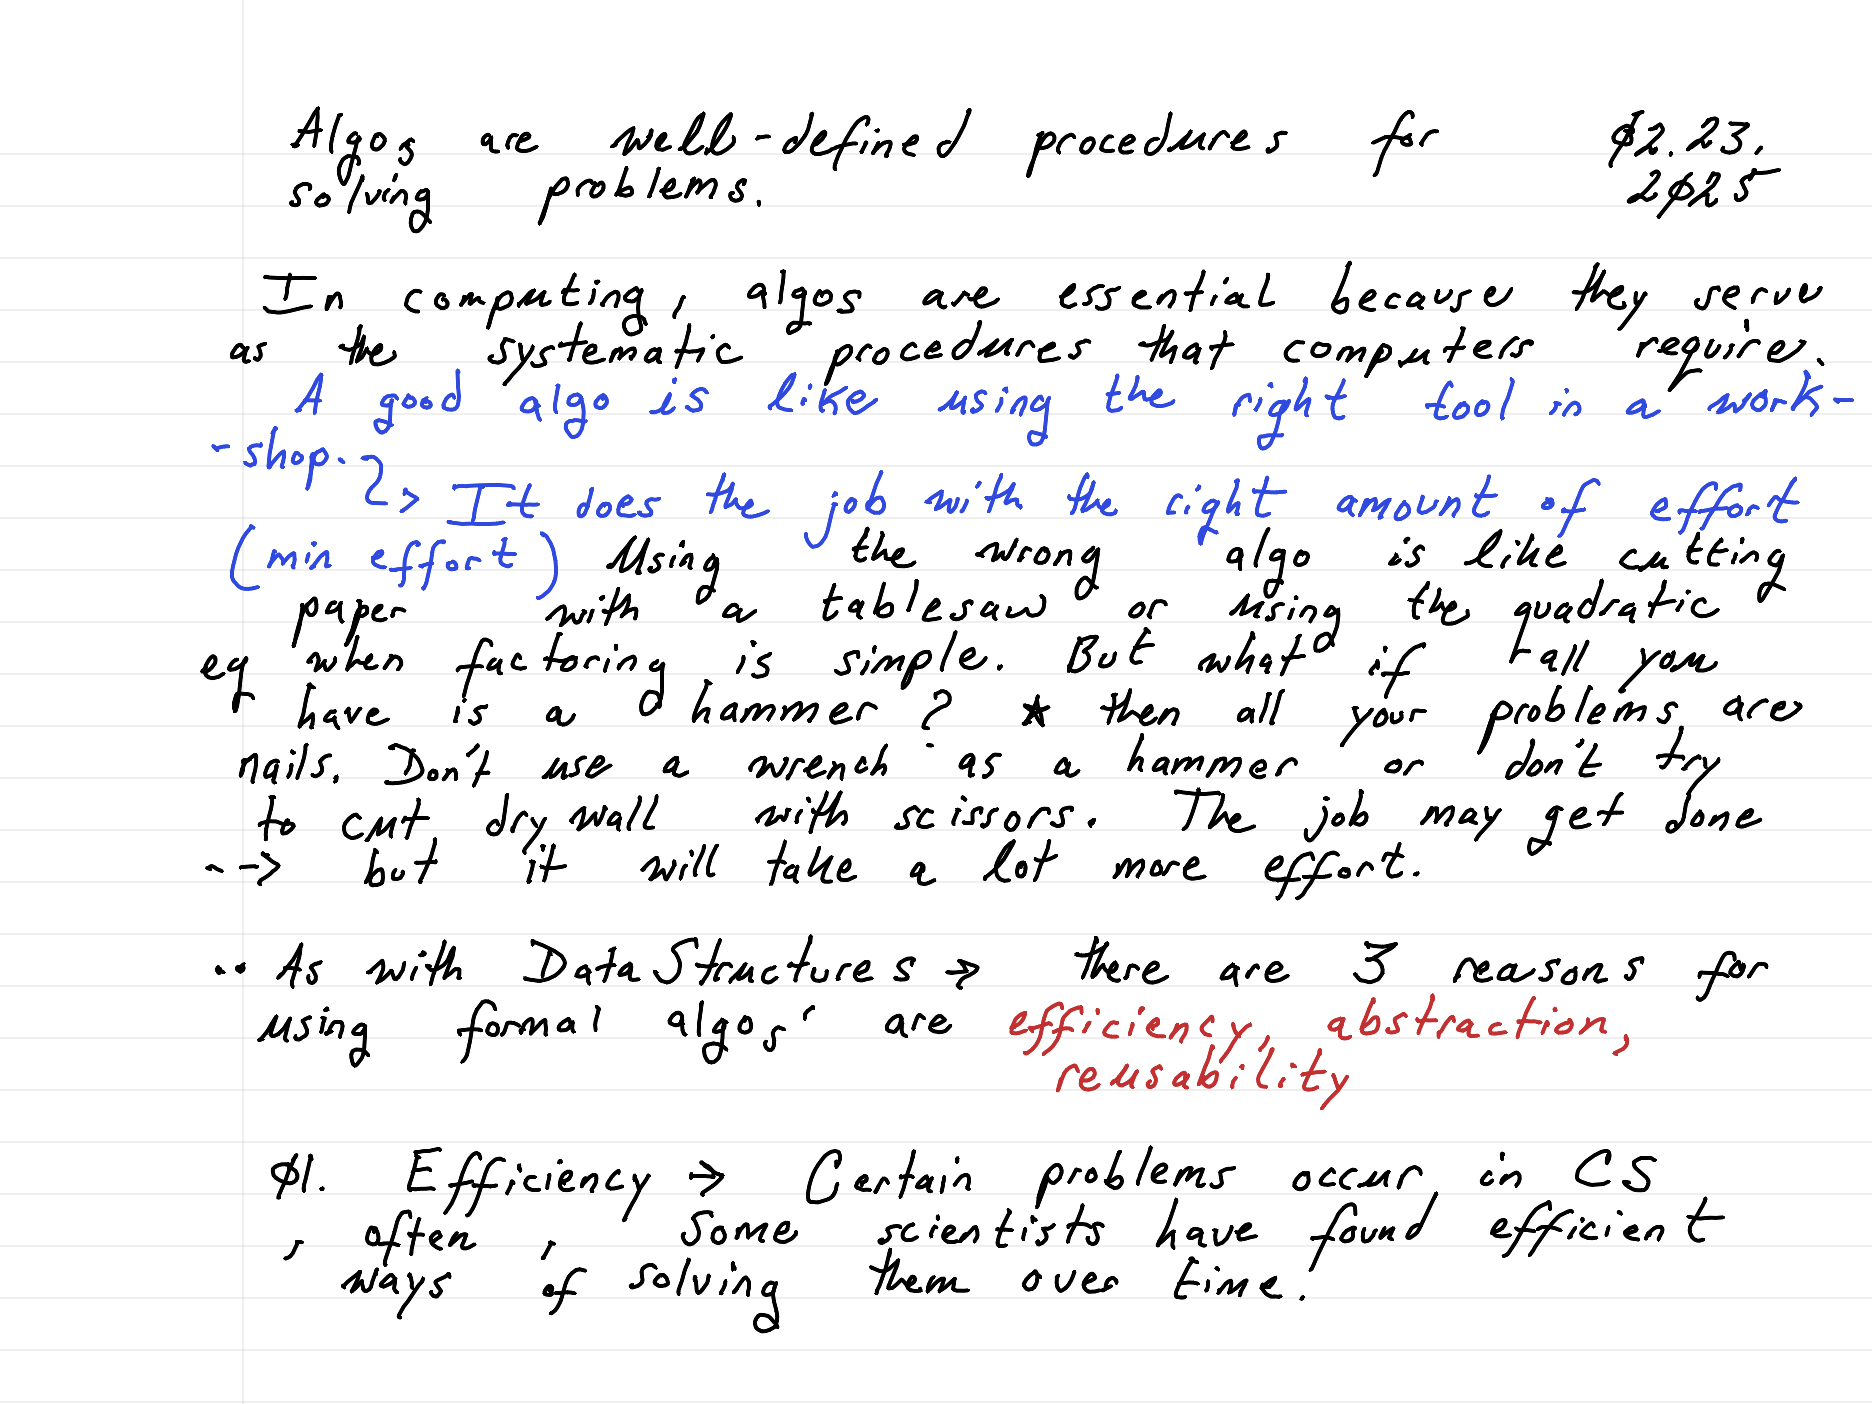 Algos are well-defined procedures for
solving problems.
ø2.23.
2ø25
In computing, algos are essential because they serve
as the systematic procedures that computers require.
A good algo is like using the right tool in a work-
-shop.
-> It does the job with the right amount of effort
(min effort) Using the wrong algo is like cutting
paper with a tablesaw or using the quadratic
eq when factoring is simple. But what if all you
have is a hammer? ★ then all your problems are
nails. Don't use a wrench as a hammer or don't try
to cut dry wall with scissors. The job may get done
--> but it will take a lot more effort.
.. As with Data Structures → there are 3 reasons for
using formal algos' are efficiency, abstraction,
reusability
ø1. Efficiency → Certain problems occur in CS
, often, some scientists have found efficient
ways of solving them over time.